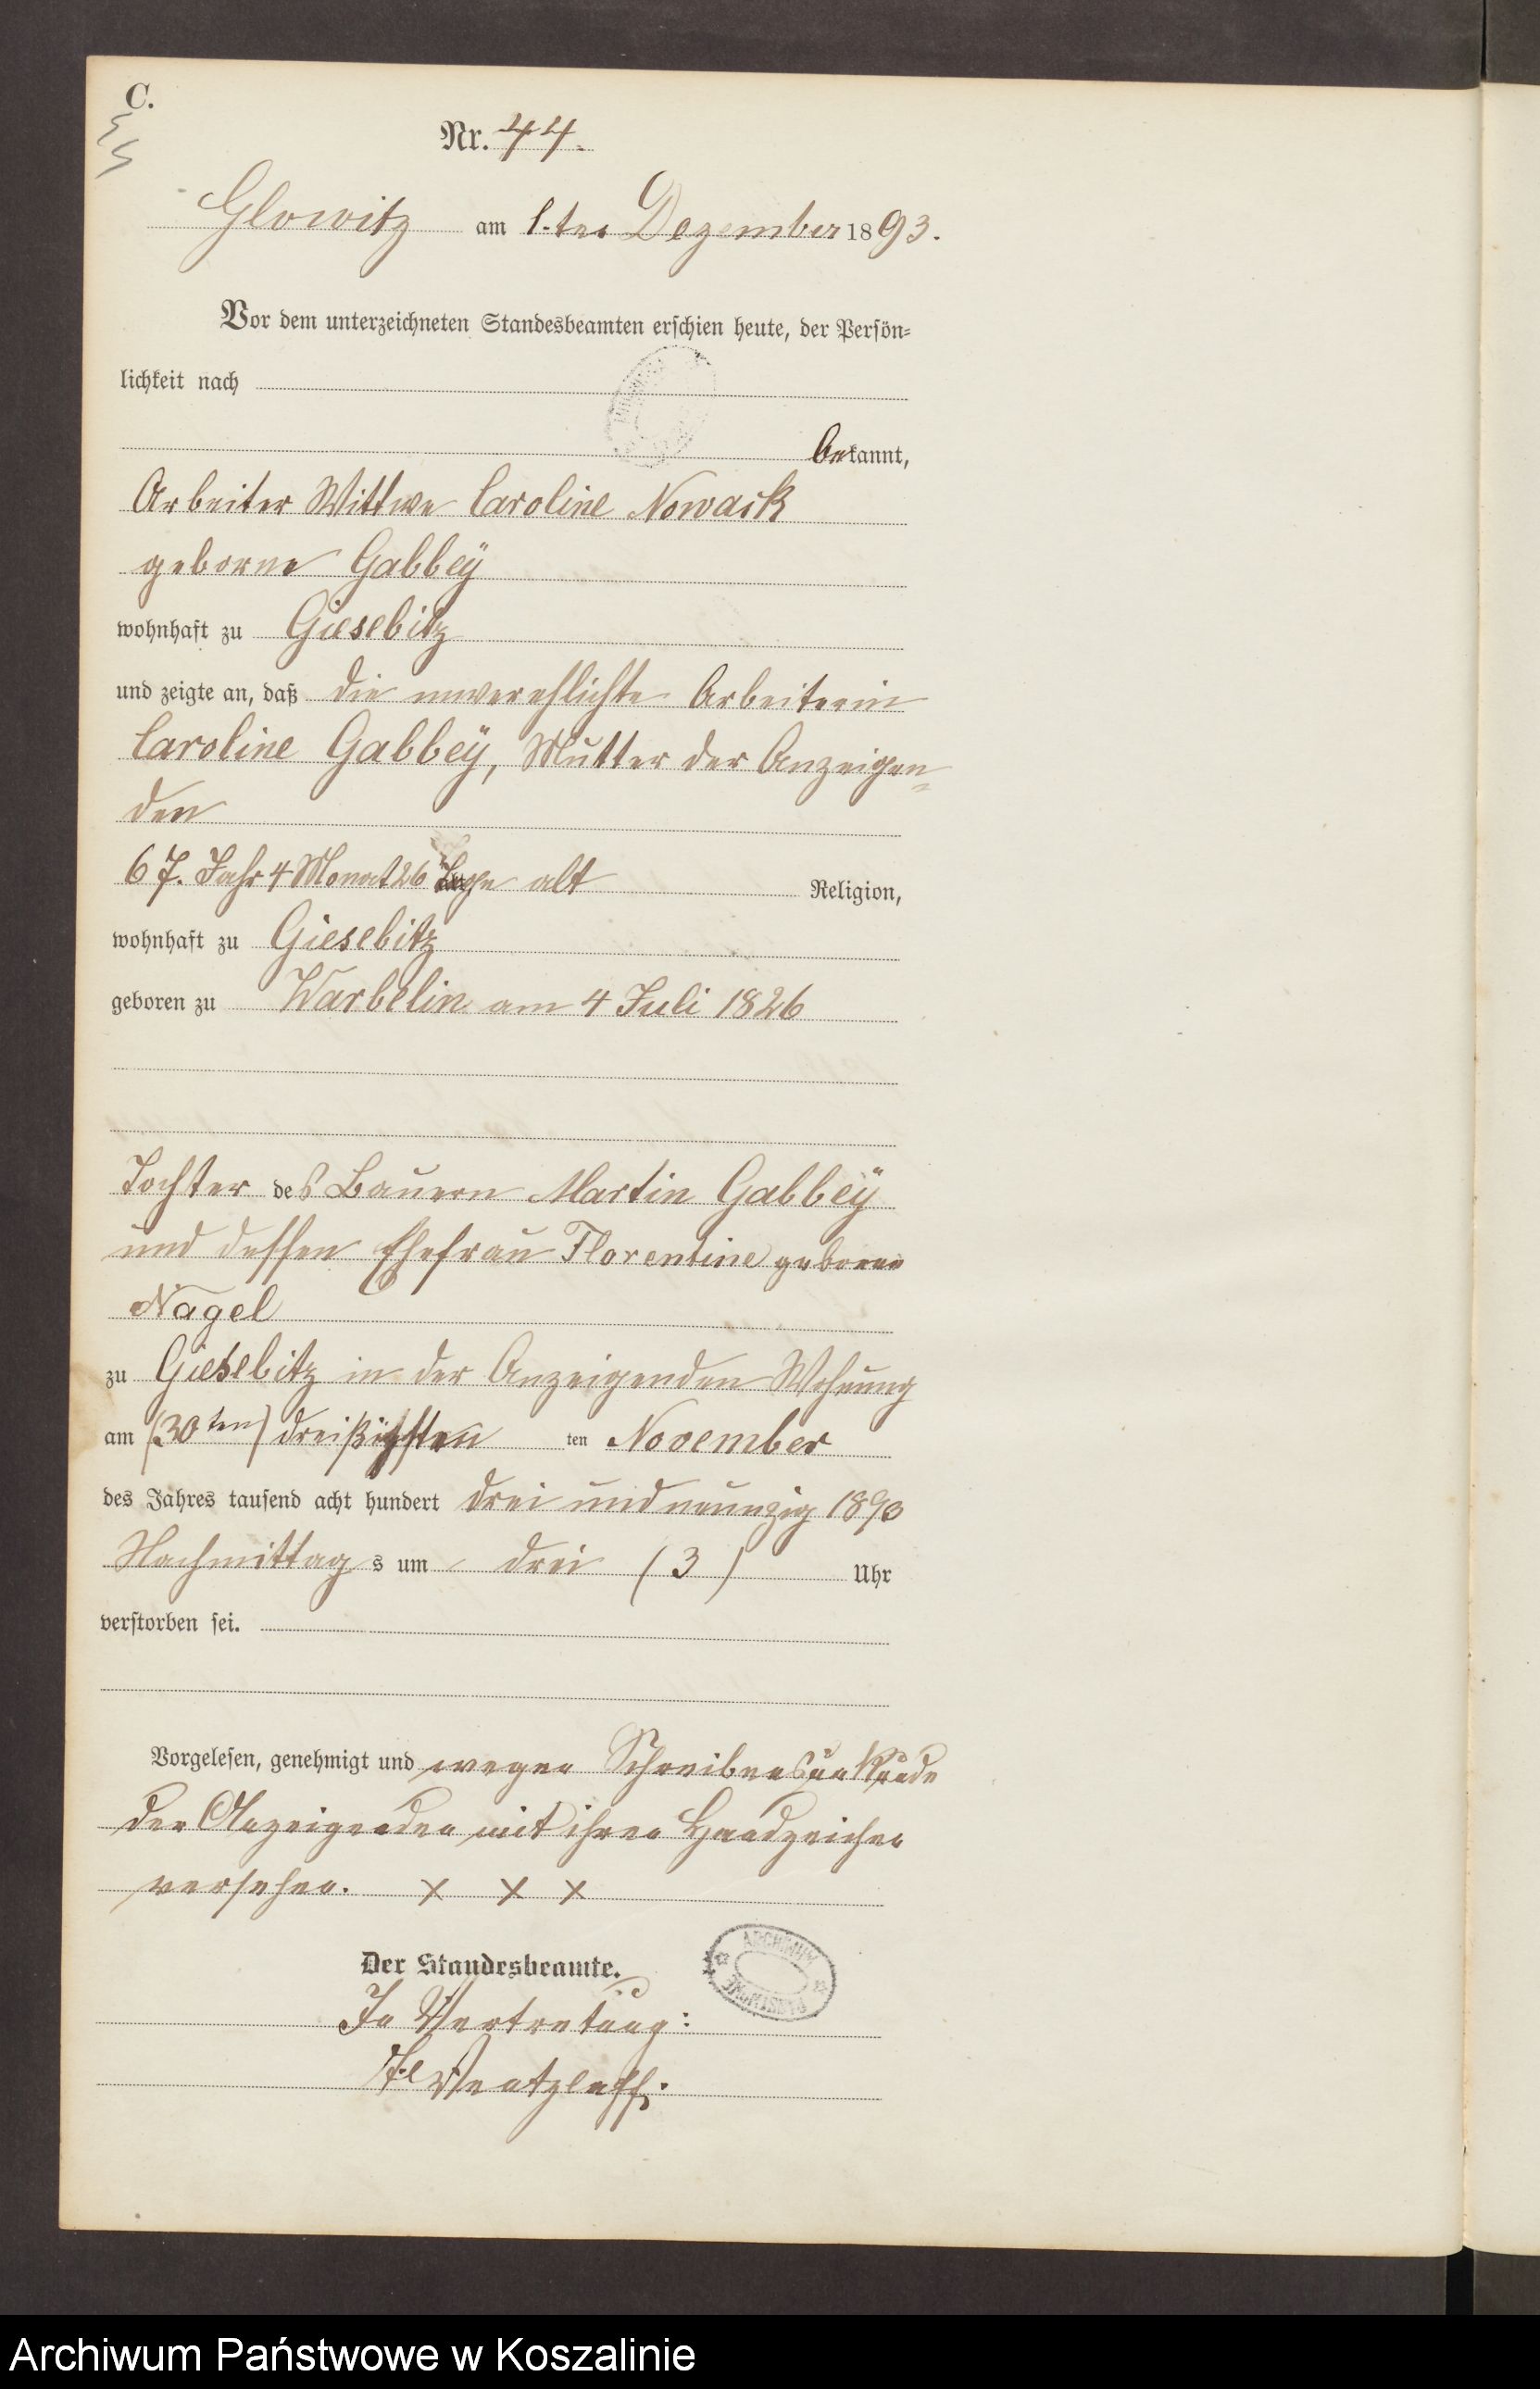 C.
Nr. 44.
Glowitz am 1.ten Dezember 1893.
Vor dem unterzeichneten Standesbeamten erschien heute, der Persön-
lichkeit nach
bekannt,
Arbeiter Wittwe Caroline Nowack
geborne Gabbeÿ
wohnhaft zu Giesebitz
und zeigte an, daß die unverehlichte Arbeiterin
Caroline Gabbeÿ, Mutter der Anzeigen=
den
67. Jahr 4 Monat 26 Tage alt Religion,
wohnhaft zu Giesebitz
geboren zu Warbelin am 4 Juli 1826
Tochter des Bauern Martin Gabbeÿ
und dessen Ehefrau Florentine geborne
Nagel
zu Giesebitz in der Anzeigenden Wohnung
am (30ten) dreißigsten ten November
des Jahres tausend acht hundert drei und neunzig 1893
Nachmittags um drei (3) Uhr
verstorben sei.
Vorgelesen, genehmigt und wegen Schreibensunkunde
der Anzeigenden mit ihren Handzeichen
versehen. x x x
Der Standesbeamte.
In Vertretung:
ARCHIWUM PAŃSTWOWE
Archiwum Państwowe w Koszalinie